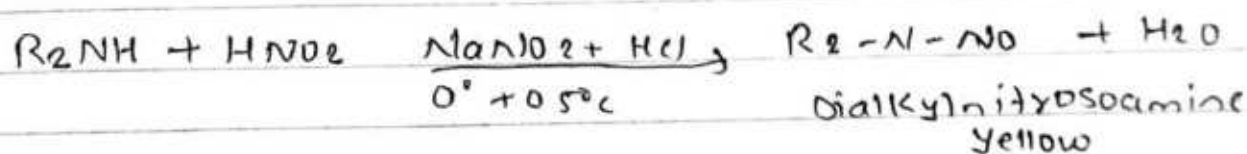 R2NH + HNO2 NaNO2 + HCl → R2-N-NO + H2O
0° + 0 5°c Dialkylnitrosoamine
Yellow